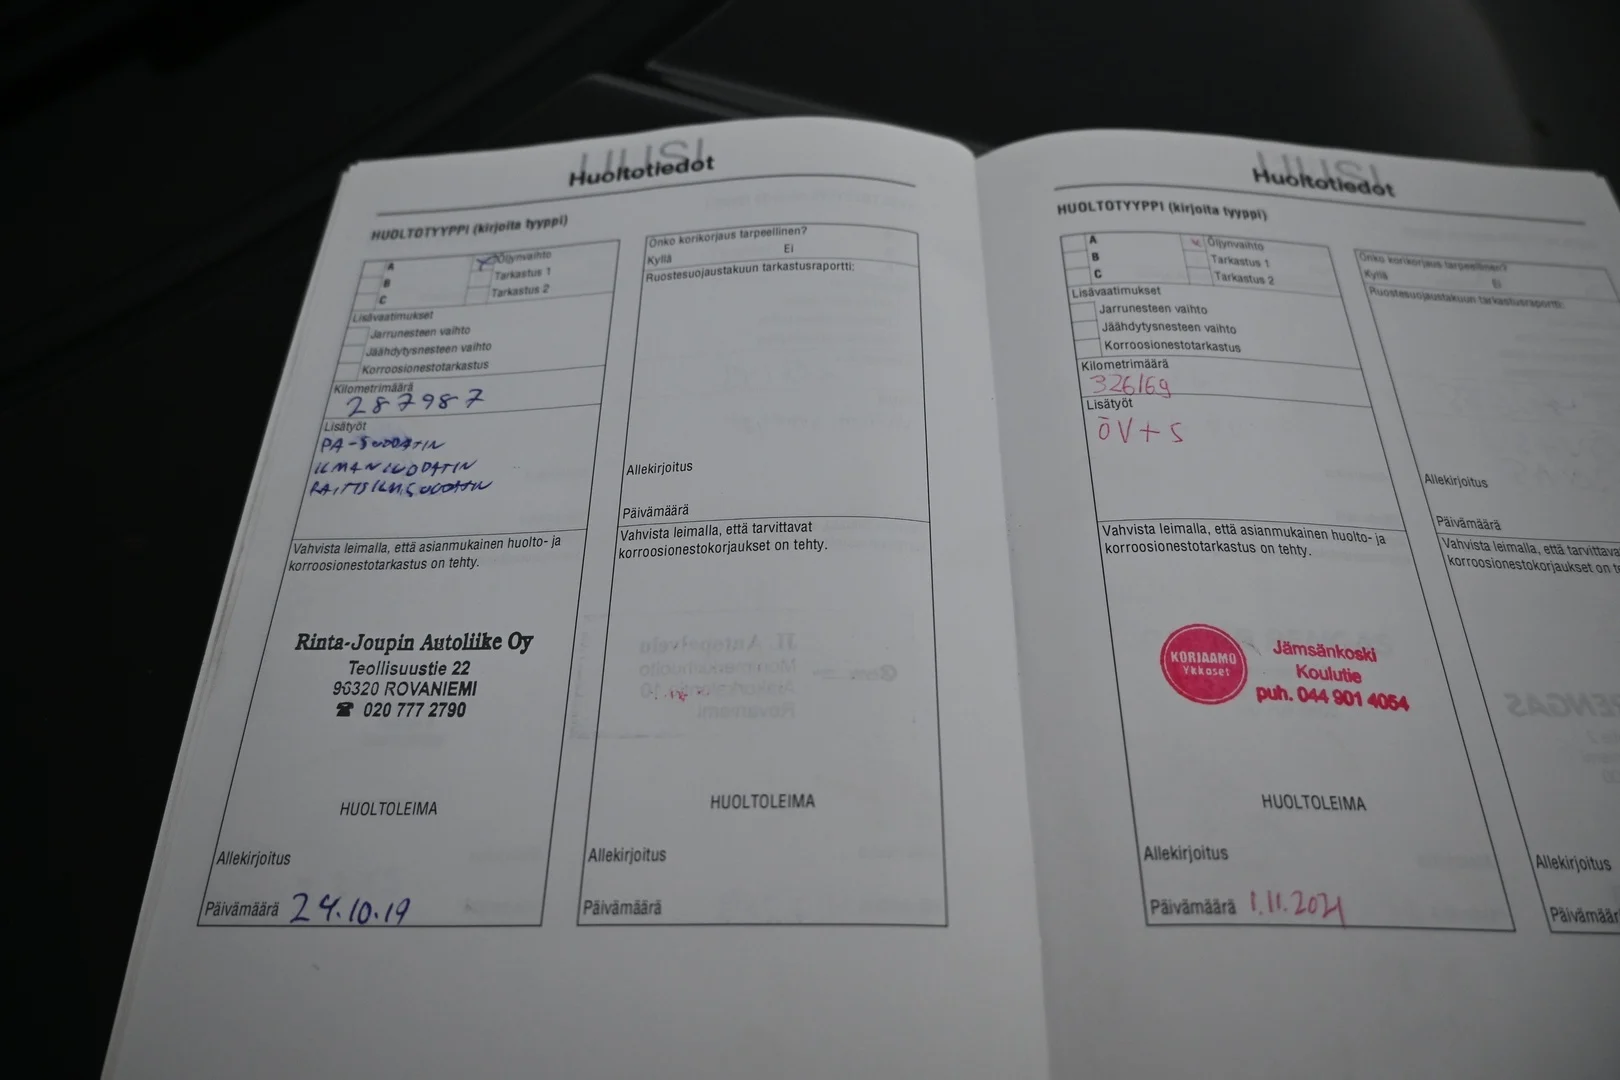 UUSI
Huoltotiedot
HUOLTOTYYPPI (kirjoita tyyppi)
A
B
C
Öljynvaihto
Tarkastus 1
Tarkastus 2
Lisävaatimukset
Jarrunesteen vaihto
Jäähdytysnesteen vaihto
Korroosionestotarkastus
Kilometrimäärä
287987
Lisätyöt
PA-SUODATIN
ILMANSUODATIN
RAITISILM.SUODATIN
Vahvista leimalla, että asianmukainen huolto- ja
korroosionestotarkastus on tehty.
Rinta-Joupin Autoliike Oy
Teollisuustie 22
96320 ROVANIEMI
☎ 020 777 2790
HUOLTOLEIMA
Allekirjoitus
Päivämäärä 24.10.19
Onko korikorjaus tarpeellinen?
Kyllä Ei
Ruostesuojaustakuun tarkastusraportti:
Allekirjoitus
Päivämäärä
Vahvista leimalla, että tarvittavat
korroosionestokorjaukset on tehty.
HUOLTOLEIMA
Allekirjoitus
Päivämäärä
UUSI
Huoltotiedot
HUOLTOTYYPPI (kirjoita tyyppi)
A
B
C
Öljynvaihto
Tarkastus 1
Tarkastus 2
Lisävaatimukset
Jarrunesteen vaihto
Jäähdytysnesteen vaihto
Korroosionestotarkastus
Kilometrimäärä
326169
Lisätyöt
ÖV+S
Vahvista leimalla, että asianmukainen huolto- ja
korroosionestotarkastus on tehty.
KORJAAMO
Ykköset
Jämsänkoski
Koulutie
puh. 044 901 4054
HUOLTOLEIMA
Allekirjoitus
Päivämäärä 1.11.2021
Onko korikorjaus tarpeellinen?
Kyllä Ei
Ruostesuojaustakuun tarkastusraportti:
Allekirjoitus
Päivämäärä
Vahvista leimalla, että
korroosionestokorjaukset on
Allekirjoitus